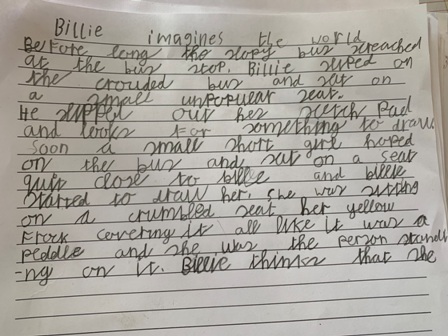 Billie imagines the world
Before long the slopy bus screached
at the bus stop. Billie steped on
the crouded bus and sat on
a small unpopular seat.
He slipped out her scetch pad
and looks for something to draw.
Soon a small short girl hoped
on the bus and sat on a seat
quit close to billie and billie
started to draw her. She was sitting
on a crumbled seat her yellow
Frock covering it all like it was a
peddle and she was the person standi
-ng on it. Billie thinks that she